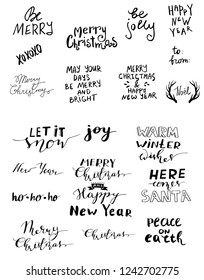 Be
MERRY
Merry
Christmas
be
jolly
HAPPY
NEW
YEAR
XOXOXO
to:
from:
Merry
Christmas
MAY YOUR
DAYS
BE MERRY
AND
BRIGHT
MERRY
CHRISTMAS
&
HAPPY
NEW YEAR
Noel
LET IT
snow
joy
WARM
WINTER
wishes
New Year
MERRY
Christmas
AND
Happy
New Year
HERE
comes
SANTA
ho-ho-ho
Merry
Christmas
Christmas
peace
on
earth
www.shutterstock.com · 1242702775